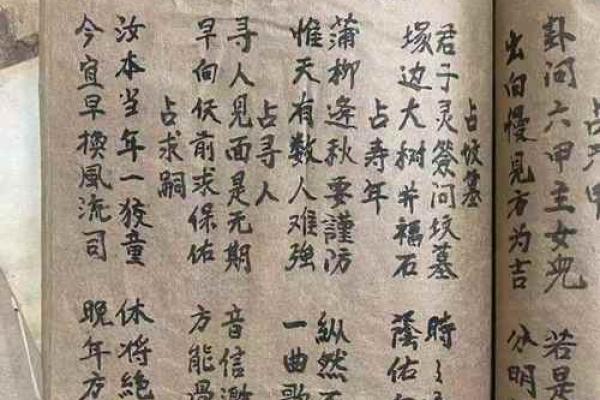 占
卦问六甲主女兒 若是
出向慢見方为吉 分明
占坟墓
君子灵簽问坟墓 時
塚边大树并福石 蔭佑
占寿年
蒲柳逢秋要謹防 縱然
惟天有数人难強 一曲歌
占寻人
寻人見面是无期 音信
早向伏前求保佑 方能過
占求嗣
汝本当年一狡童 休将絕
今宜早換風流司 晚年方